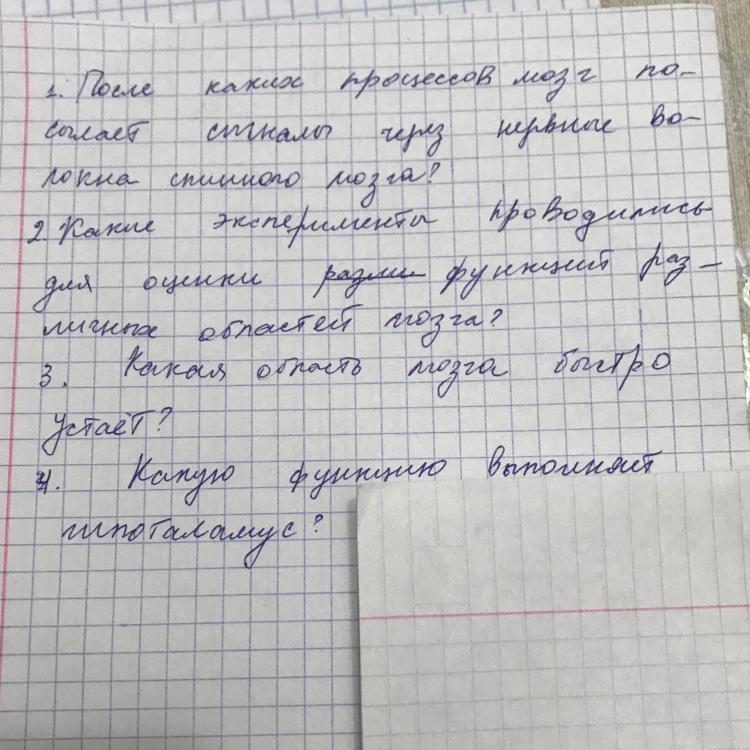 1. После каких процессов мозг по-
сылает сигналы через нервные во-
локна спинного мозга?
2. Какие эксперименты проводились
для оценки функций раз-
личных областей мозга?
3. Какая область мозга быстро
устаёт?
4. Какую функцию выполняет
гипоталамус?